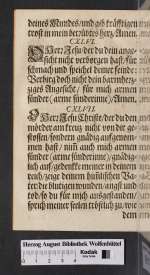 deines Mundes/und gib kräfftigen
trost in mein betrübtes hertz, Amen.
CXLVI.
O Herr Jesu der du dein ange-
sicht nicht verborgen hast/für
schmach und speichel deiner feinde:
Verbirg doch nicht dein barmhertziges
Angesicht/ für mich armen
sünder (arme sünderinne) Amen.
CXLVII.
O Herr Jesu Christ/der du den
mörder am kreutz nicht von dir ge-
stossen/sondern gnädig auffgenom-
men hast/ nim auch mich armen
sünder (arme sünderinne) gnädig-
lich auf/gedencke meiner in deinem
reich/zeige deinem himlischen Va-
ter die blutigen wunden/angst und
tod/so du für mich außgestanden/
sprich meiner seelen tröstlich zu/wie
dem
Herzog August Bibliothek Wolfenbüttel